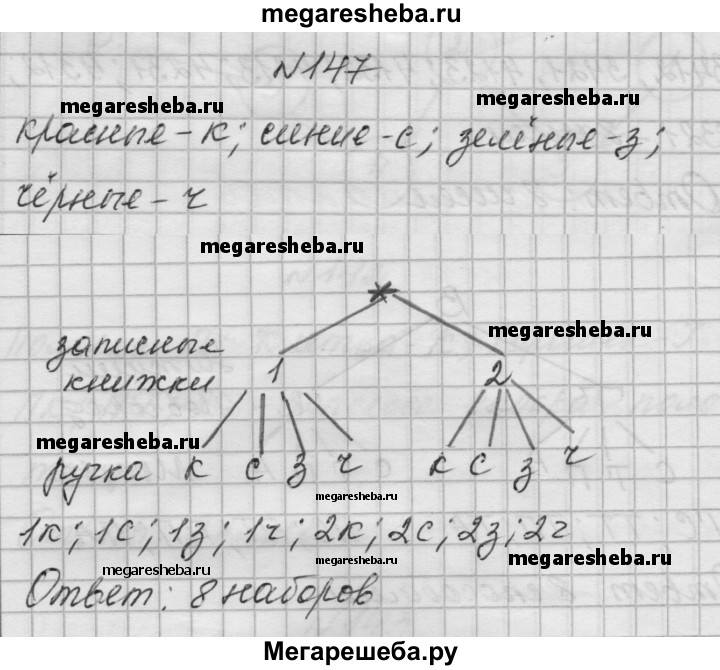 megaresheba.ru
№147
megaresheba.ru
megaresheba.ru
красные - к; синие - с; зелёные - з;
чёрные - ч
megaresheba.ru
*
megaresheba.ru
записные
книжки 1 2
megaresheba.ru
ручка к с з ч к с з ч
megaresheba.ru
1к; 1с; 1з; 1ч; 2к; 2с; 2з; 2ч
megaresheba.ru
megaresheba.ru
megaresheba.ru
Ответ: 8 наборов
Мегарешеба.ру